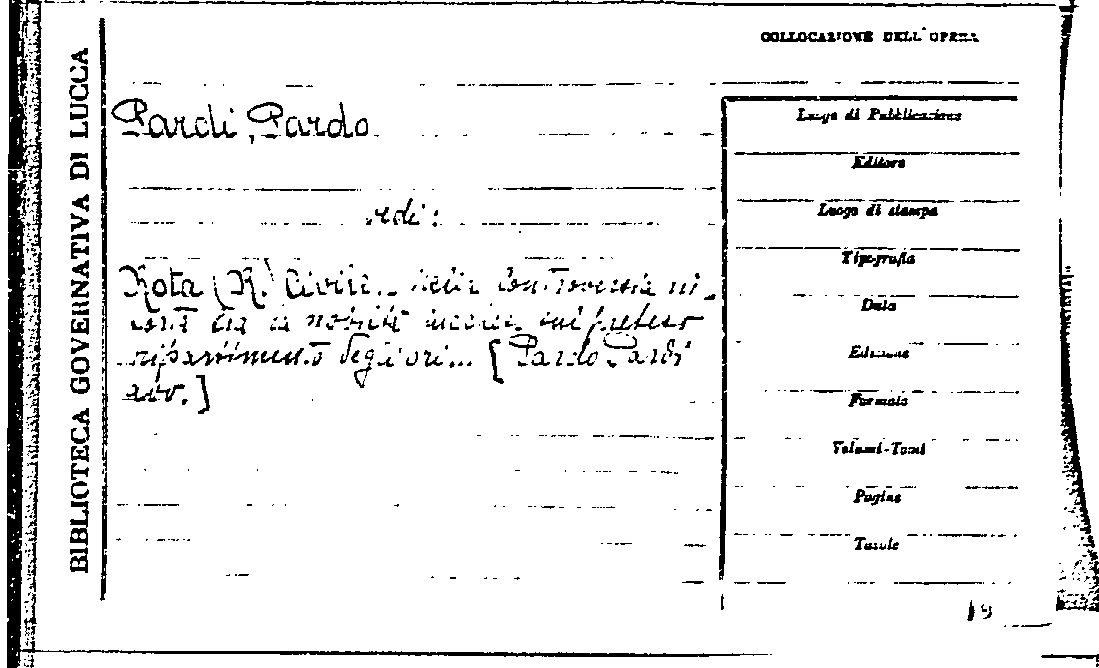 BIBLIOTECA GOVERNATIVA DI LUCCA
COLLOCAZIONE DELL'OPERA
Pardi, Pardo
vedi:
Rota (R.) Civile... nella controversia
nobile
ripartimento degli ori... [Pardo Pardi
avv.]
Luogo di Pubblicazione
Editore
Luogo di stampa
Tipografia
Data
Edizione
Formato
Volumi-Tomi
Pagine
Tavole